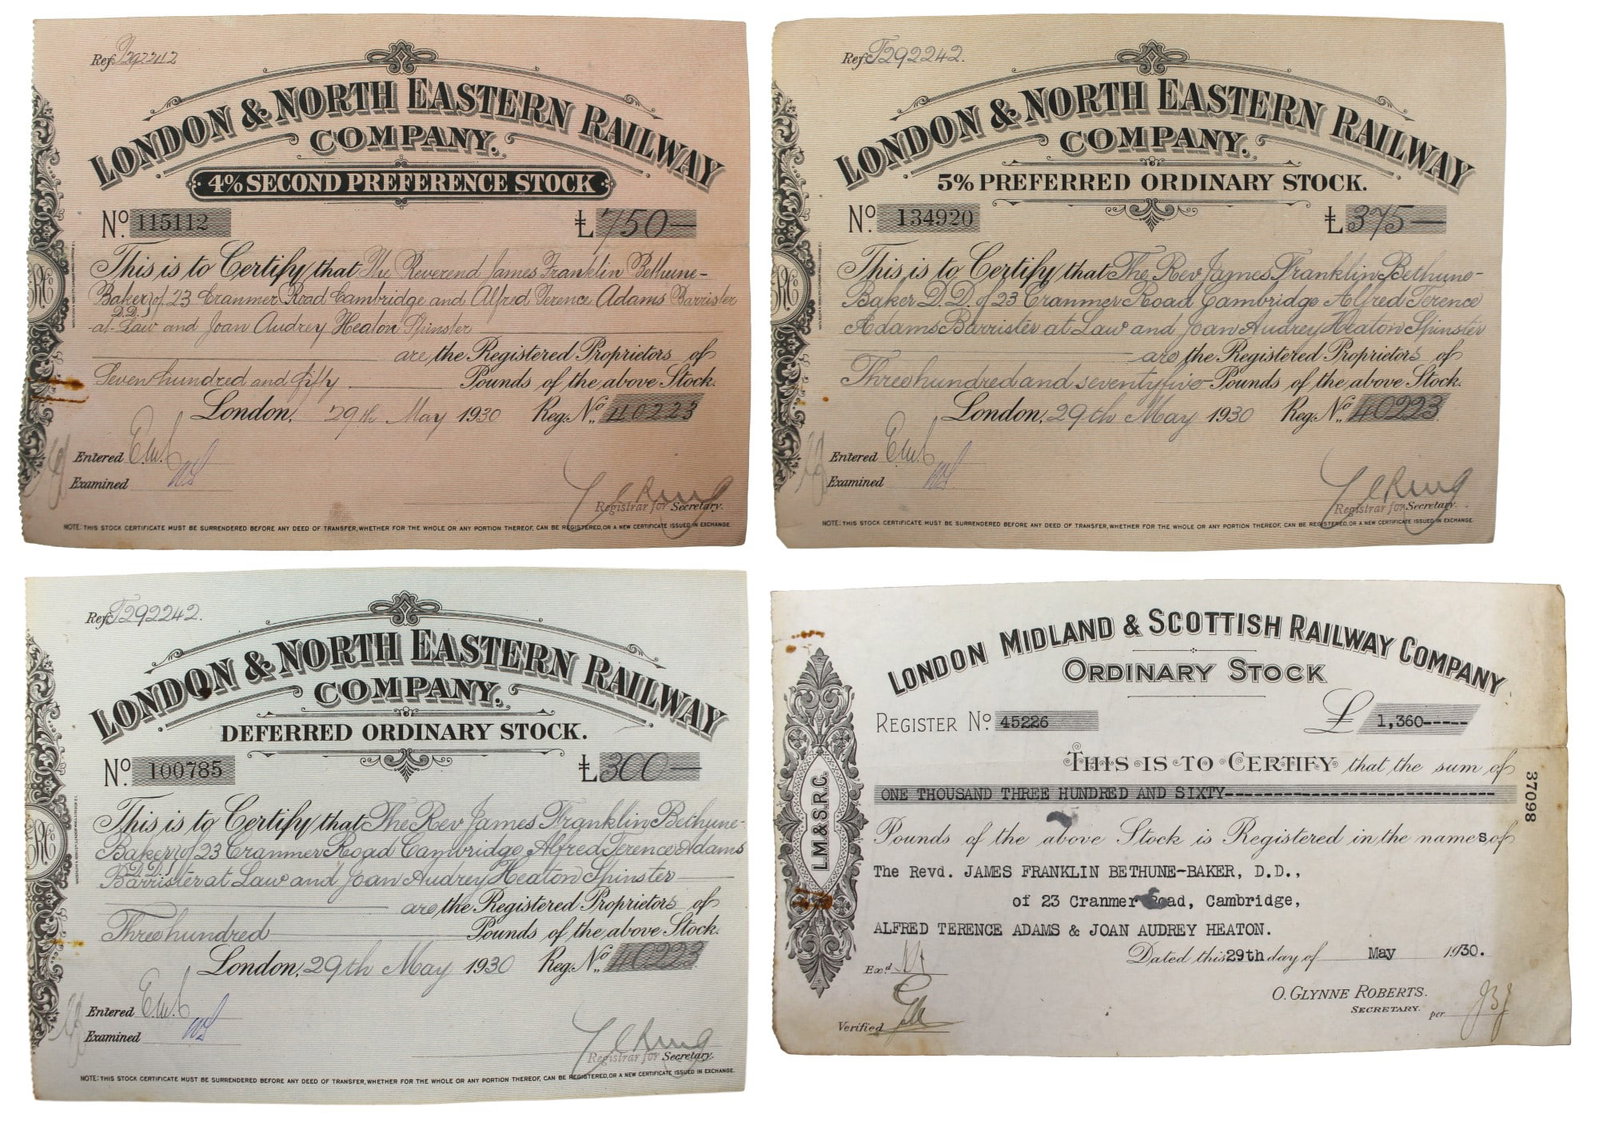 Ref. T292242
LONDON & NORTH EASTERN RAILWAY
COMPANY.
4% SECOND PREFERENCE STOCK
No. 115112 £750—
This is to Certify that The Reverend James Franklin Bethune-
Baker D.D. of 23 Cranmer Road Cambridge and Alfred Terence Adams Barrister
at-Law and Joan Audrey Heaton Spinster
are the Registered Proprietors of
Seven hundred and fifty Pounds of the above Stock.
London, 29th May 1930 Reg. No. 40223
Entered
Examined
Registrar for Secretary.
NOTE: THIS STOCK CERTIFICATE MUST BE SURRENDERED BEFORE ANY DEED OF TRANSFER, WHETHER FOR THE WHOLE OR ANY PORTION THEREOF, CAN BE REGISTERED, OR A NEW CERTIFICATE ISSUED IN EXCHANGE.
Ref. T292242.
LONDON & NORTH EASTERN RAILWAY
COMPANY.
5% PREFERRED ORDINARY STOCK.
No. 134920 £375—
This is to Certify that The Rev James Franklin Bethune-
Baker D.D. of 23 Cranmer Road Cambridge Alfred Terence
Adams Barrister at Law and Joan Audrey Heaton Spinster
are the Registered Proprietors of
Three hundred and seventy five Pounds of the above Stock.
London, 29th May 1930 Reg. No. 40223
Entered
Examined
Registrar for Secretary.
NOTE: THIS STOCK CERTIFICATE MUST BE SURRENDERED BEFORE ANY DEED OF TRANSFER, WHETHER FOR THE WHOLE OR ANY PORTION THEREOF, CAN BE REGISTERED, OR A NEW CERTIFICATE ISSUED IN EXCHANGE.
Ref. T292242.
LONDON & NORTH EASTERN RAILWAY
COMPANY.
DEFERRED ORDINARY STOCK.
No. 100785 £300—
This is to Certify that The Rev James Franklin Bethune-
Baker D.D. of 23 Cranmer Road Cambridge Alfred Terence Adams
Barrister at Law and Joan Audrey Heaton Spinster
are the Registered Proprietors of
Three hundred Pounds of the above Stock.
London, 29th May 1930 Reg. No. 40223
Entered
Examined
Registrar for Secretary.
NOTE: THIS STOCK CERTIFICATE MUST BE SURRENDERED BEFORE ANY DEED OF TRANSFER, WHETHER FOR THE WHOLE OR ANY PORTION THEREOF, CAN BE REGISTERED, OR A NEW CERTIFICATE ISSUED IN EXCHANGE.
LONDON MIDLAND & SCOTTISH RAILWAY COMPANY
ORDINARY STOCK
REGISTER No. 45226 £ 1,360-----
THIS IS TO CERTIFY that the sum of
ONE THOUSAND THREE HUNDRED AND SIXTY
Pounds of the above Stock is Registered in the names of
The Revd. JAMES FRANKLIN BETHUNE-BAKER, D.D.,
of 23 Cranmer Road, Cambridge,
ALFRED TERENCE ADAMS & JOAN AUDREY HEATON.
Dated this 29th day of May 1930.
Exd.
O. GLYNNE ROBERTS.
SECRETARY.
per
Verified
L M & S. R. C.
37098